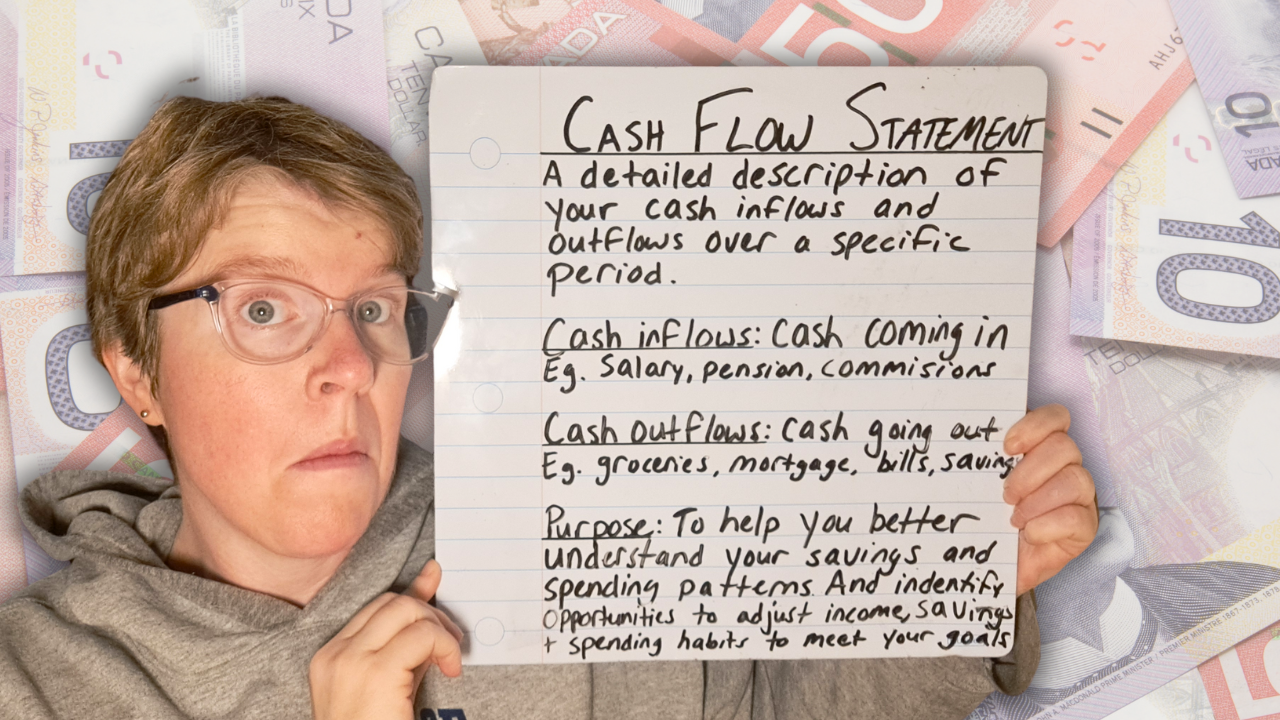 CASH FLOW STATEMENT
A detailed description of
your cash inflows and
outflows over a specific
period.
Cash inflows: Cash coming in
Eg. Salary, pension, commisions
Cash outflows: Cash going out
Eg. groceries, mortgage, bills, savings
Purpose: To help you better
understand your savings and
spending patterns. And indentify
opportunities to adjust income, savings
+ spending habits to meet your goals
50
10
10
AHJ6
TEN
DOLLAR
MACDONALD PRIME MINISTER - PREMIER MINISTRE 1867-1873, 1878